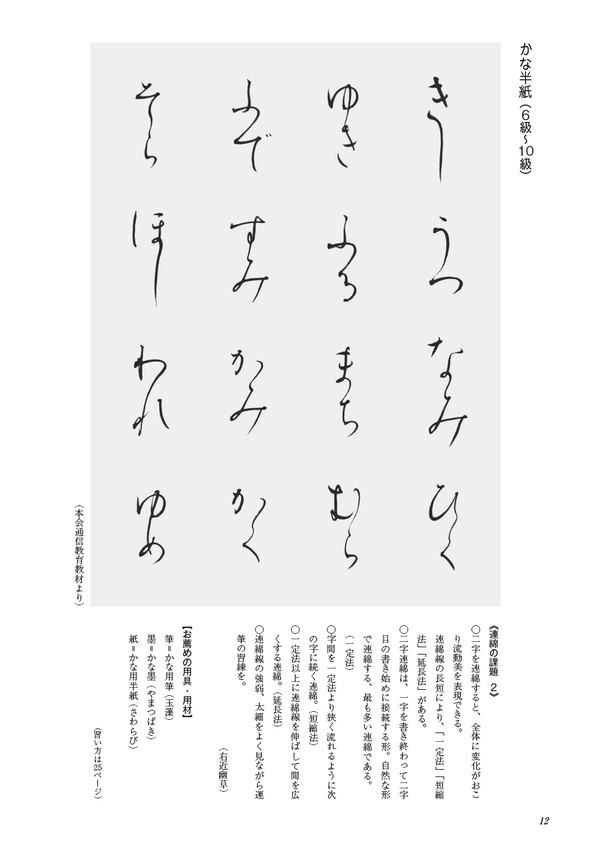 かな半紙（6級～10級）
きし うつ なみ ひく
ゆき ふる まち むら
ふで すみ かみ かく
そら ほし われ ゆめ
（本会通信教育教材より）
《連綿の課題　2》
○二字を連綿すると、全体に変化がおこ
り流動美を表現できる。
連綿線の長短により、「一定法」「短縮
法」「延長法」がある。
○二字連綿は、一字を書き終わって二字
目の書き始めに接続する形。自然な形
で連綿する、最も多い連綿である。
（一定法）
○字間を一定法より狭く流れるように次
の字に続く連綿。（短縮法）
○一定法以上に連綿線を伸ばして間を広
くする連綿。（延長法）
○連綿線の強弱、太細をよく見ながら連
筆の習練を。
（右近幽草）
【お薦めの用具・用材】
筆＝かな用筆（玉藻）
墨＝かな墨（やまつばき）
紙＝かな用半紙（さわらび）
（習い方は25ページ）
12